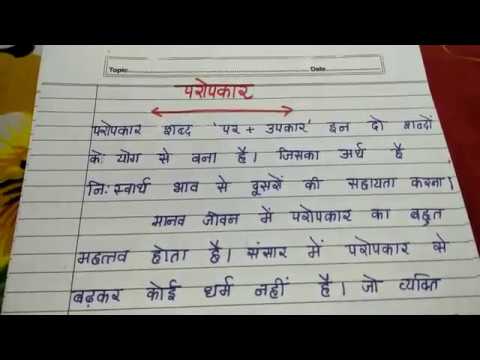 Topic
Date
परोपकार
परोपकार शब्द 'पर + उपकार' इन दो शब्दों
के योग से बना है। जिसका अर्थ है
निःस्वार्थ भाव से दूसरों की सहायता करना।
मानव जीवन में परोपकार का बहुत
महत्तव होता है। संसार में परोपकार से
बढ़कर कोई धर्म नहीं है। जो व्यक्ति